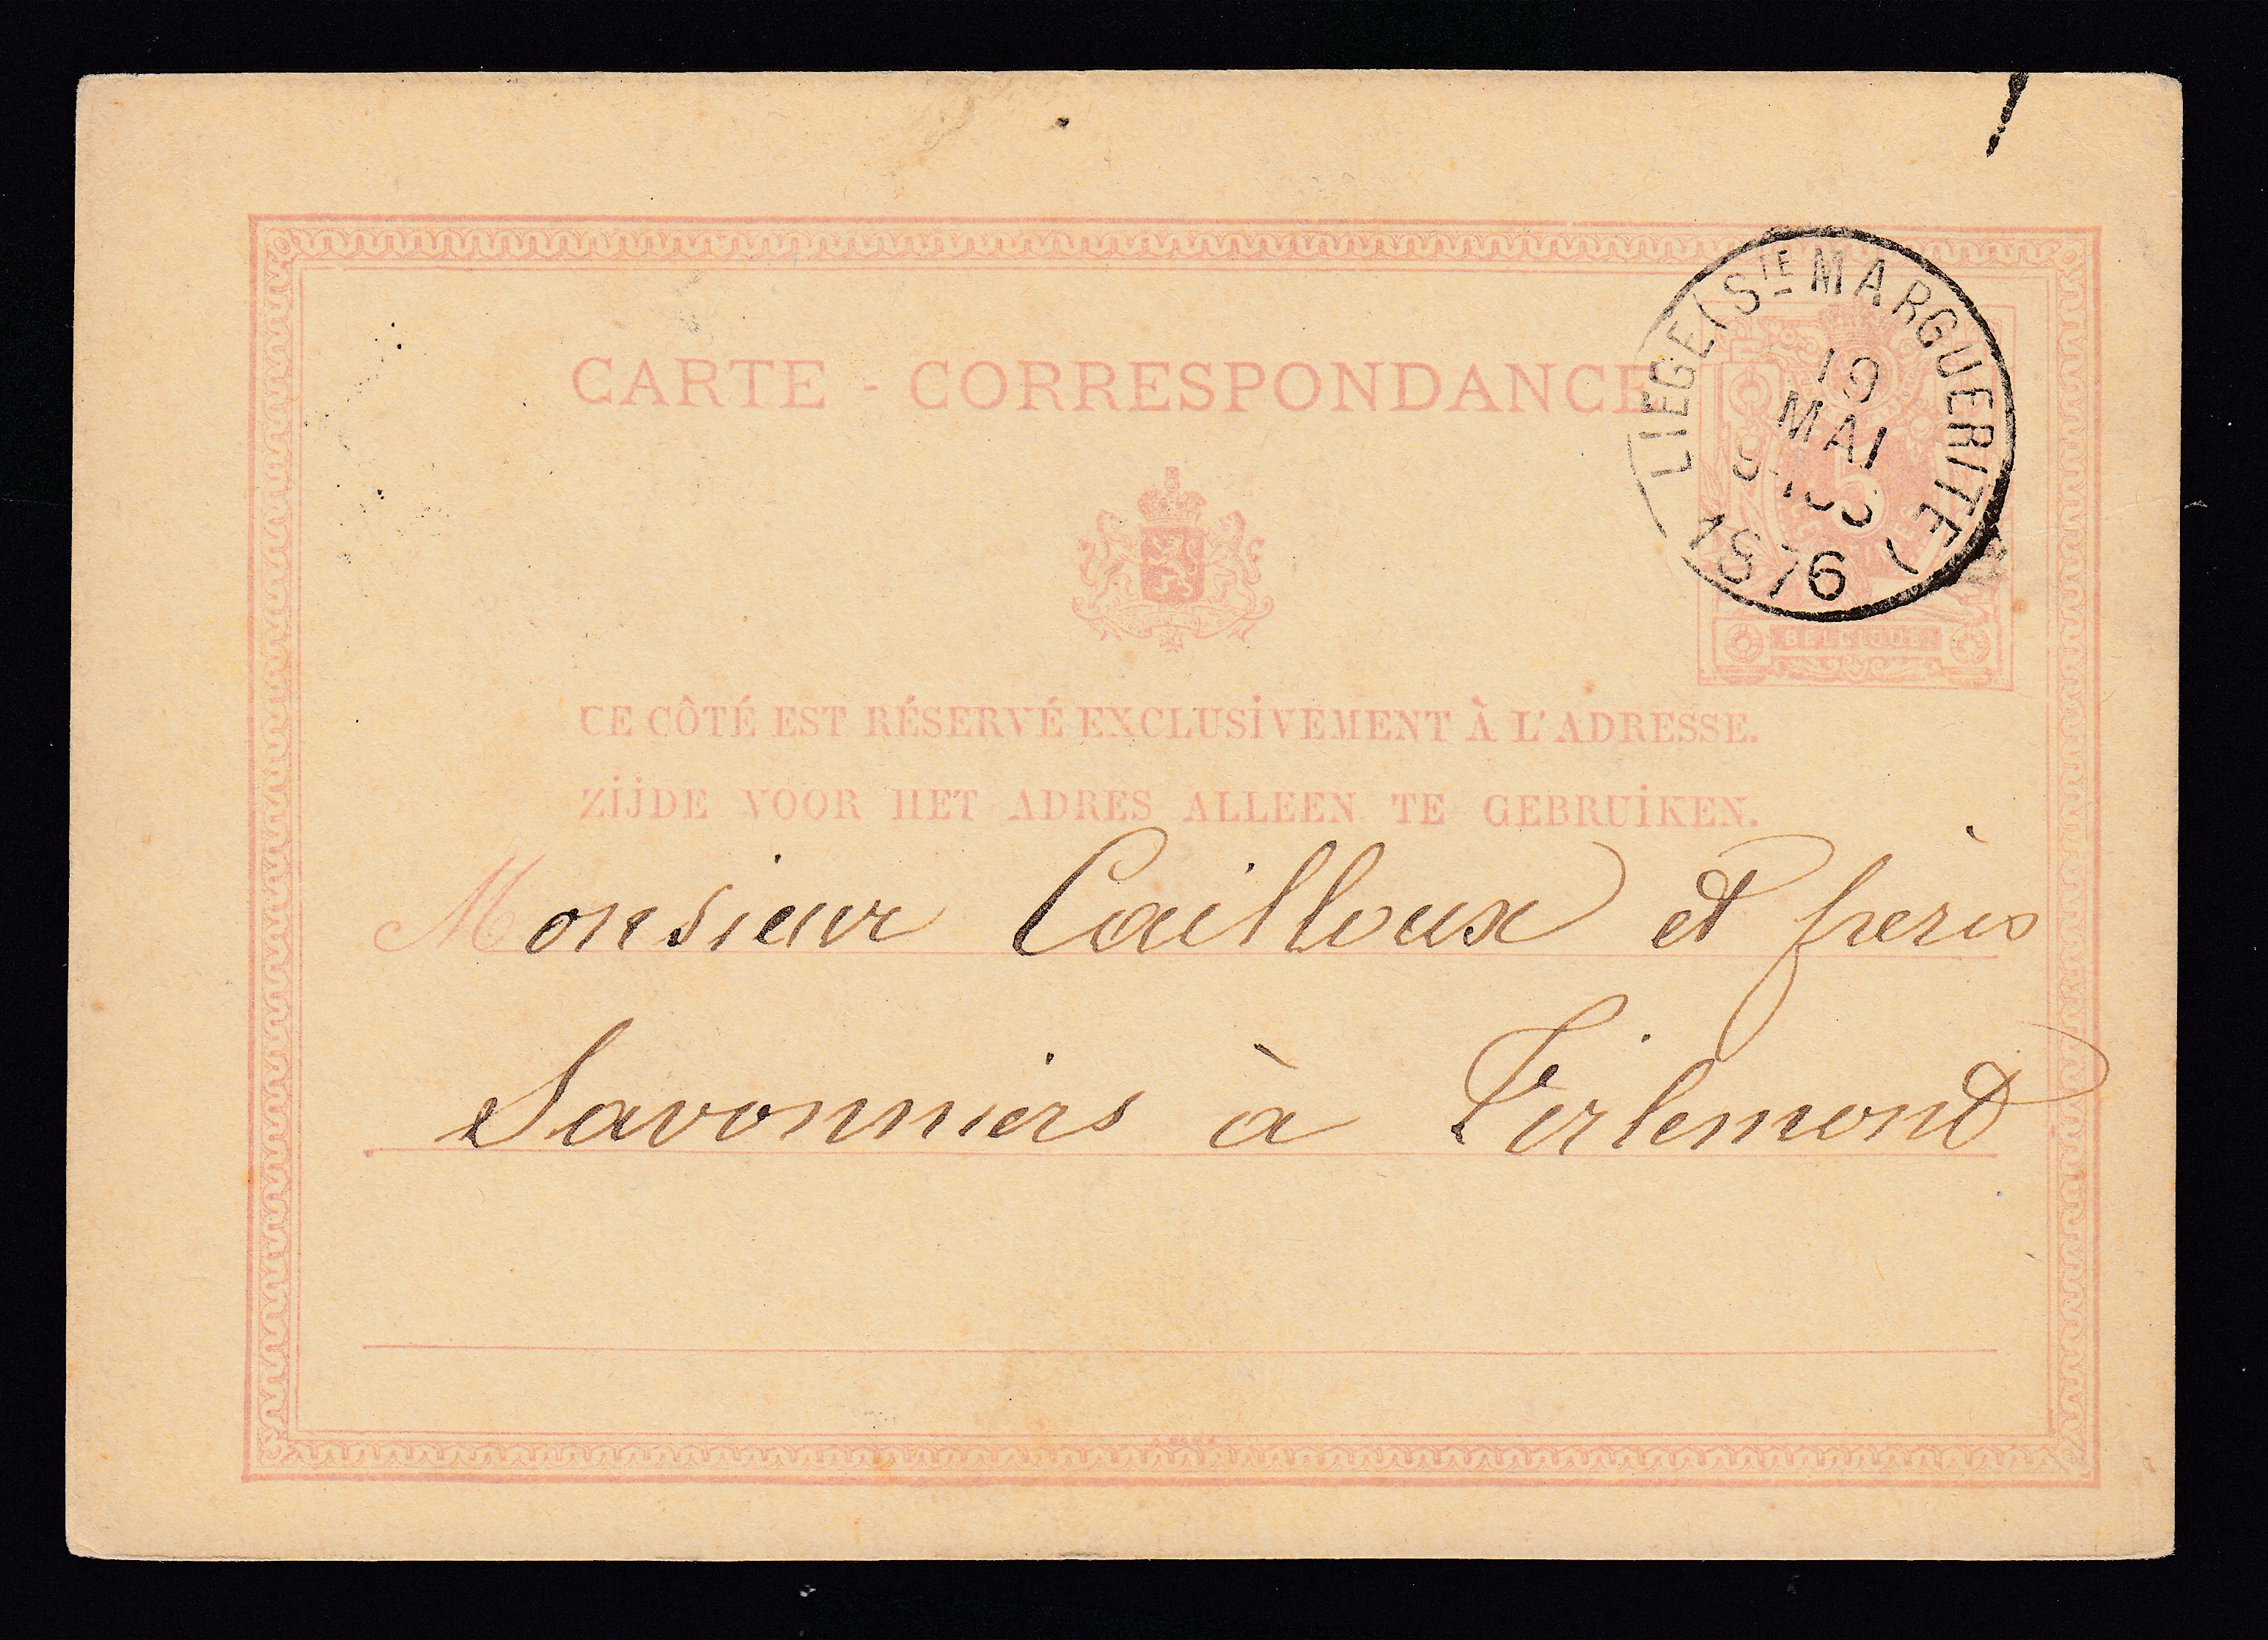 CARTE - CORRESPONDANCE
LIEGE (STE MARGUERITE)
19
MAI
1876
5
BELGIQUE
CE CÔTÉ EST RÉSERVÉ EXCLUSIVEMENT À L'ADRESSE.
ZIJDE VOOR HET ADRES ALLEEN TE GEBRUIKEN.
Monsieur Cailloux et frères
Savonniers à Tirlemont